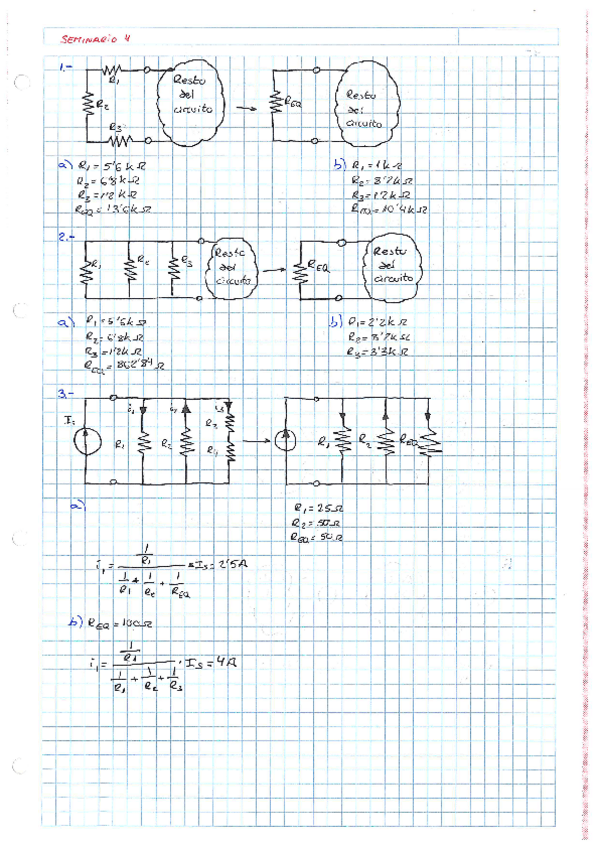 SEMINARIO 4
1.-
R1
R2
R3
Resto del circuito
REQ
Resto del circuito
a) R1 = 5'6 k Ω
R2 = 6'8 k Ω
R3 = 1'2 k Ω
REQ = 13'6 k Ω
b) R1 = 1 k Ω
R2 = 8'2 k Ω
R3 = 1'2 k Ω
REQ = 10'4 k Ω
2.-
R1
R2
R3
Resto del circuito
REQ
Resto del circuito
a) R1 = 5'6 k Ω
R2 = 6'8 k Ω
R3 = 1'2 k Ω
REQ = 862'84 Ω
b) R1 = 2'2 k Ω
R3 = 3'3 k Ω
3.-
Is
i1
i3
R1
R2
R3
R4
R1
R2
REQ
a)
R1 = 25 Ω
R2 = 50 Ω
REQ = 50 Ω
i1 = (1/R1) / (1/R1 + 1/R2 + 1/REQ) * Is = 2'5A
b) REQ = 100 Ω
i1 = (1/R1) / (1/R1 + 1/R2 + 1/R3) · Is = 4A